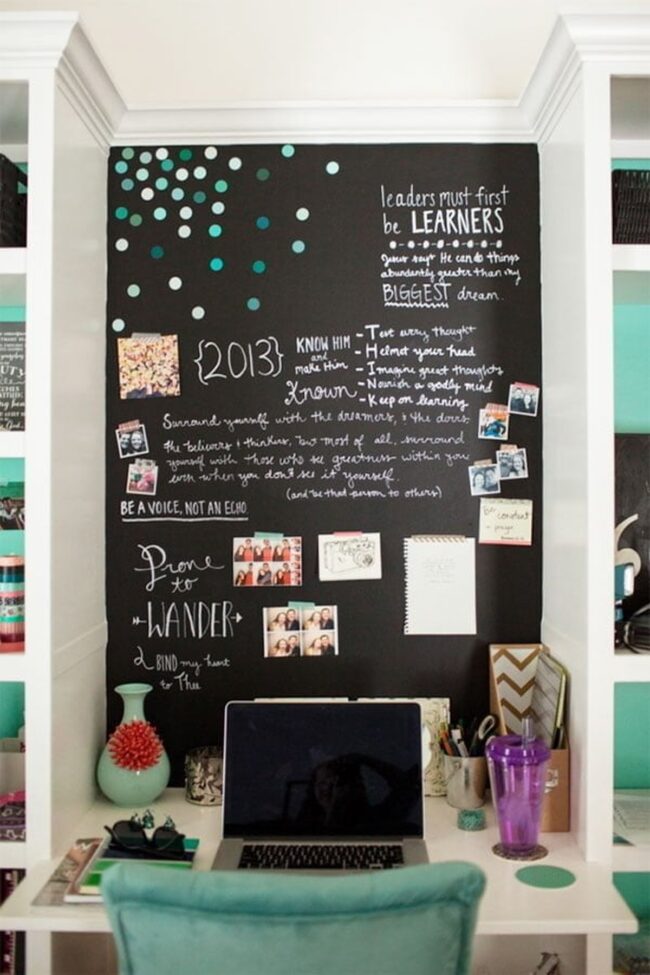 leaders must first
be LEARNERS
Jesus says He can do things
abundantly greater than my
BIGGEST dream.
{2013}
KNOW HIM
and
make Him
Known
- Test every thought
- Helmet your head
- Imagine great thoughts
- Nourish a godly mind
- Keep on learning
Surround yourself with the dreamers, & the doers
the believers & thinkers, but most of all, surround
yourself with those who see greatness within you
even when you don't see it yourself.
(and be that person to others)
BE A VOICE, NOT AN ECHO.
be constant
prayer
Prone
to
WANDER
BIND my heart
to Thee